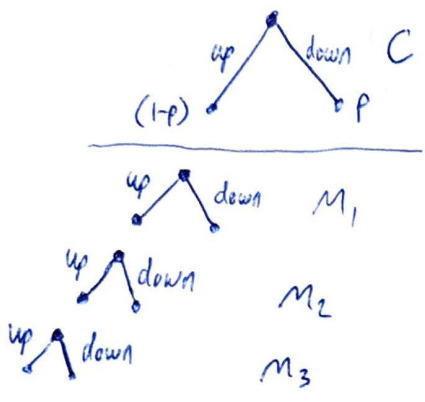 up down C
(1-p) p
up down M1
up down M2
up down M3